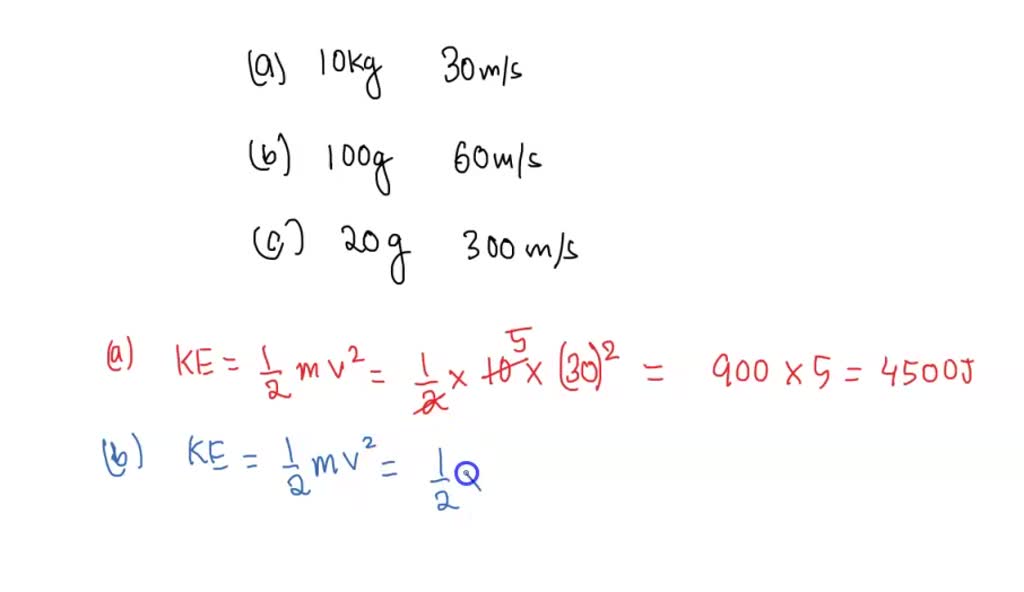 (a) 10kg 30m/s
(b) 100g 60m/s
(c) 20g 300m/s
(a) KE = 1/2 mv² = 1/2 × 10 5 × (30)² = 900 × 5 = 4500J
(b) KE = 1/2 mv² = 1/2